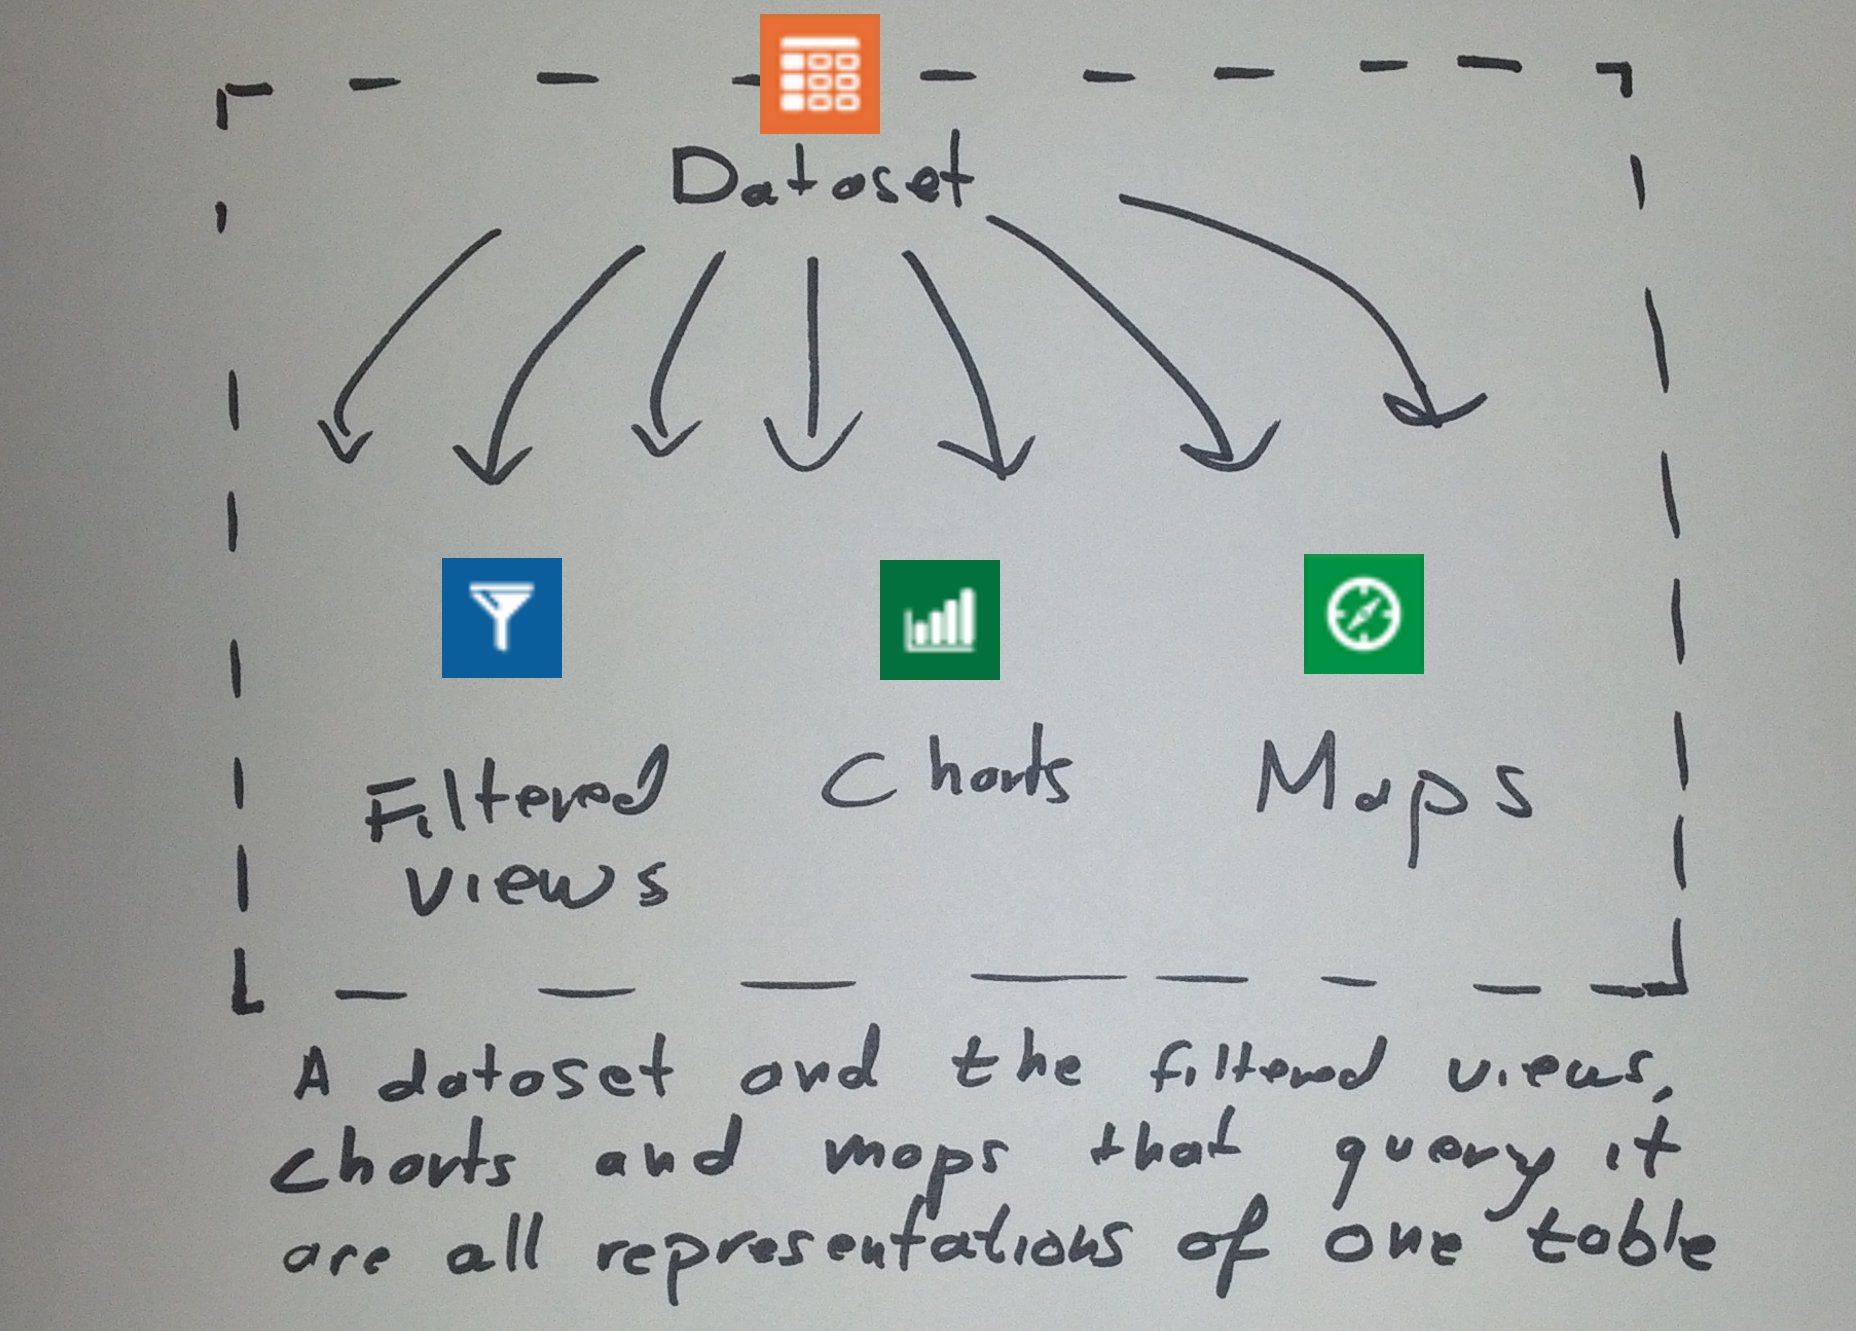 Dataset
Filtered
views
Charts
Maps
A dataset and the filtered views,
charts and maps that query it
are all representations of one table